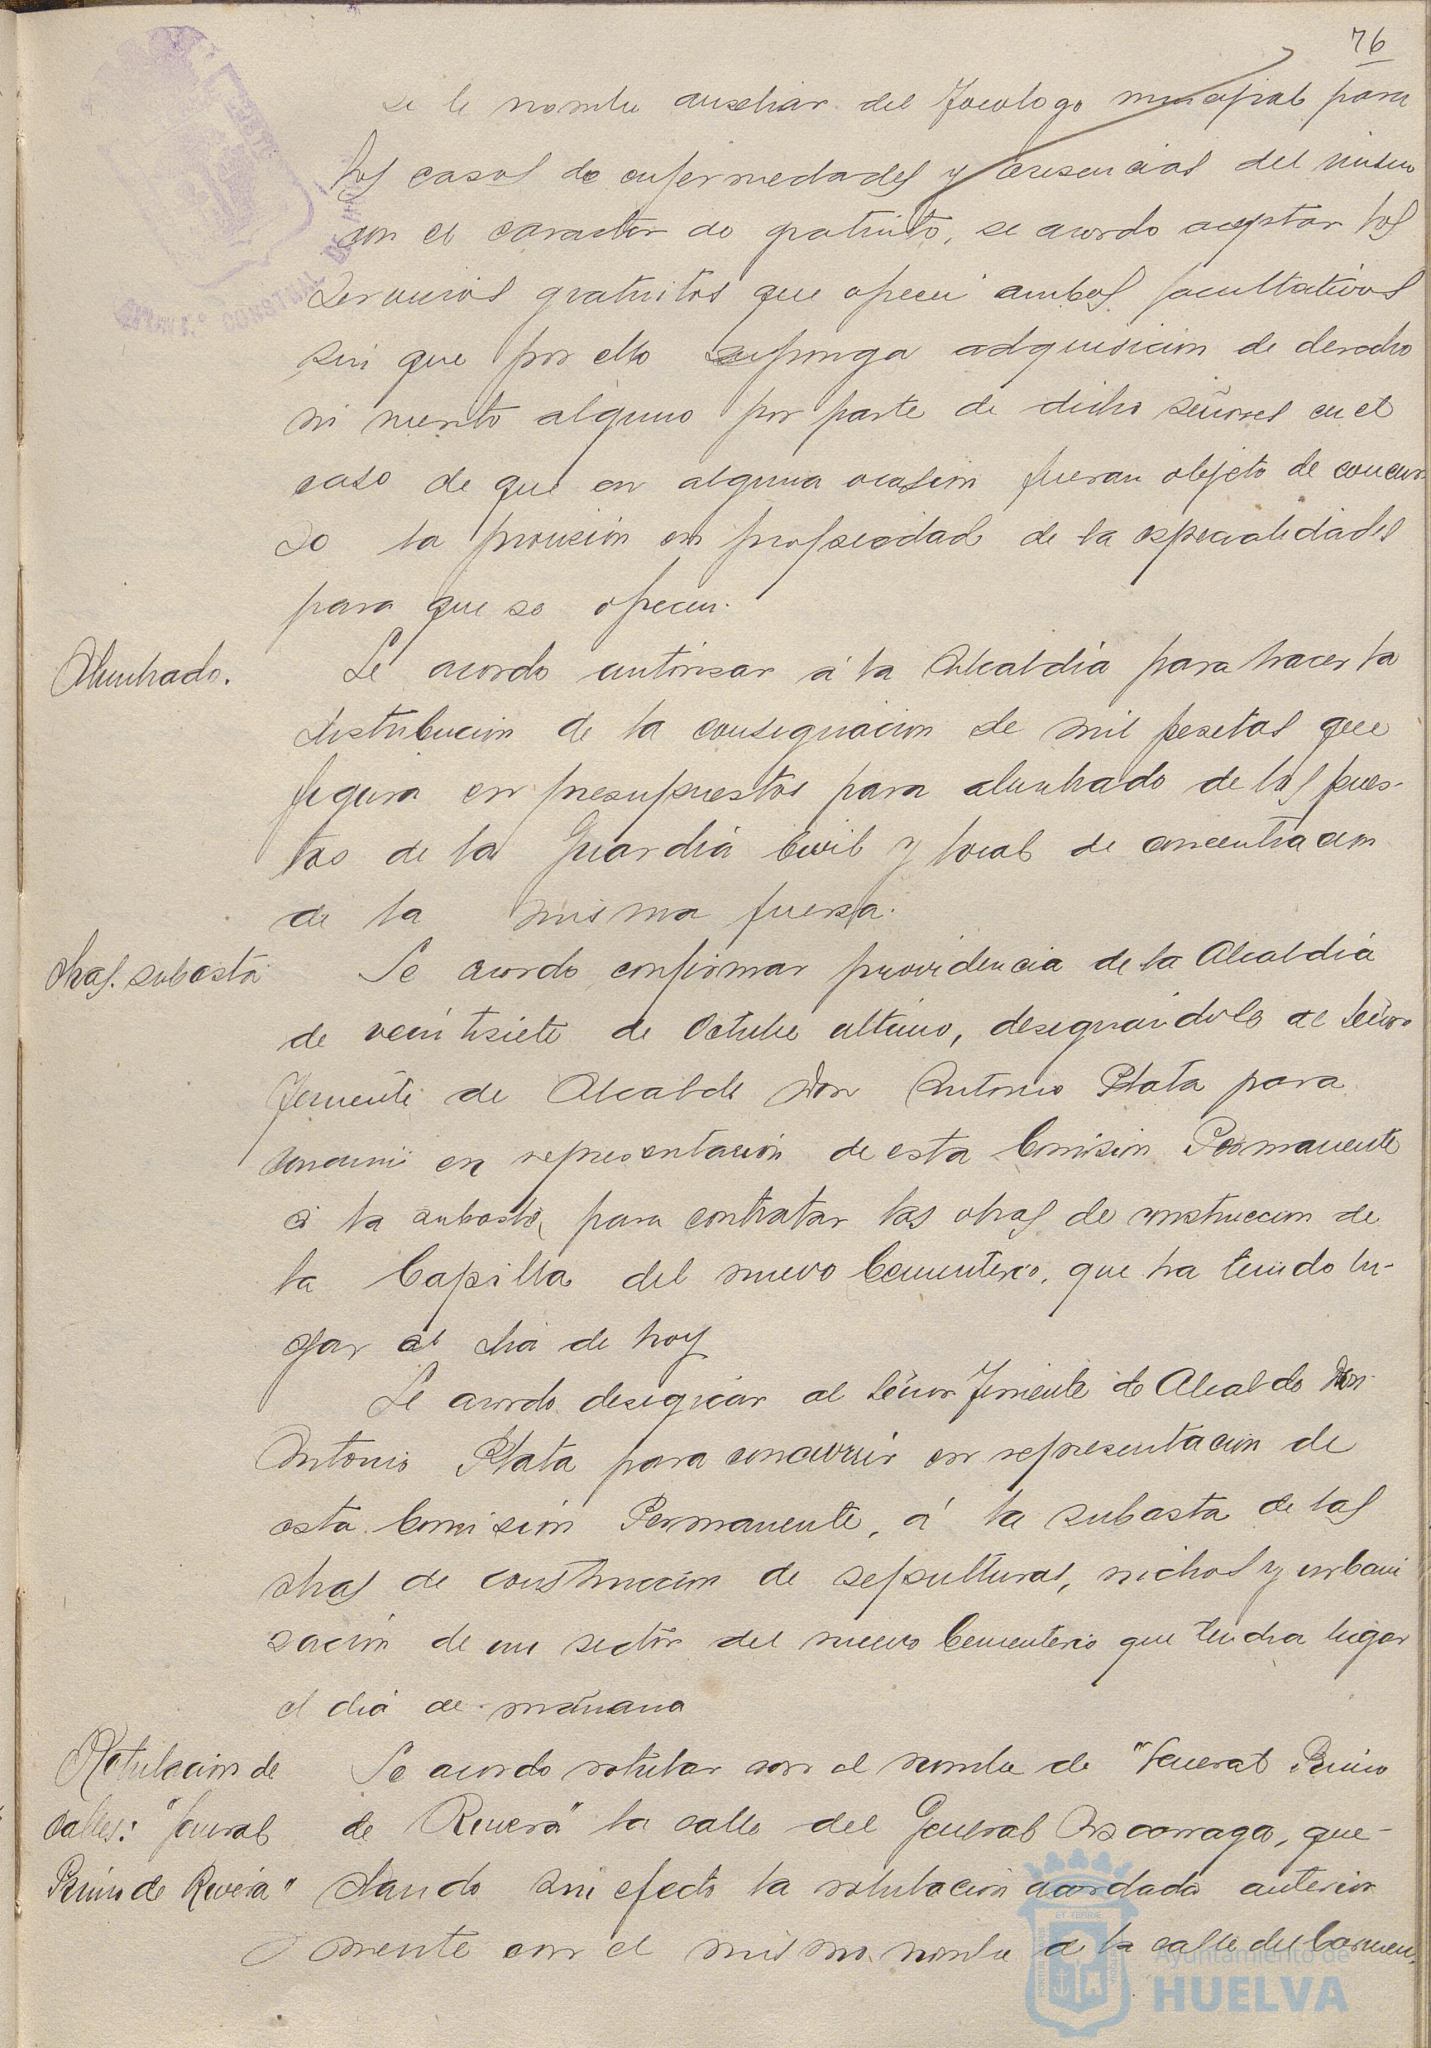 76
se le nombre auxiliar del Tocologo municipal para
los casos de enfermedades y ausencias del mismo
con el caracter de gratuito, se acordo aceptar los
servicios gratuitos que ofrecen ambos facultativos
sin que por ello suponga adquisicion de derecho
ni merito alguno por parte de dicho señores en el
caso de que en alguna ocasion fueran objeto de concur
so la provision en propiedad de la especialidades
para que se ofrecen.
Alumbrado. Se acordo autorizar á la Alcaldia para hacer la
distribucion de la consignacion de mil pesetas que
figura en presupuestos para alumbrado de los pues-
tos de la Guardia Civil y local de concentracion
de la misma fuerza.
Obras. subasta Se acordo confirmar providencia de la Alcaldia
de veintisiete de Octubre ultimo, designándole al Señor
Teniente de Alcalde Don Antonio Plata para
concurrir en representación de esta Comision Permanente
á la subasta para contratar las obras de construccion de
la Capilla del nuevo Cementerio, que ha tenido lu-
gar el dia de hoy
Se acordo designar al Señor Teniente de Alcalde Don
Antonio Plata para concurrir en representacion de
esta Comisión Permanente, á la subasta de las
obras de construccion de sepulturas, nichos y urbani
zación de un sector del nuevo Cementerio que tendra lugar
el dia de mañana
Rotulacion de
calles: "General
Primo de Rivera"
Se acordo rotular con el nombre de "General Primo
de Rivera" la calle del General Azcarraga, que-
dando sin efecto la rotulacion acordada anterior
mente con el mismo nombre a la calle del Carmen.
Ayuntamiento de
HUELVA